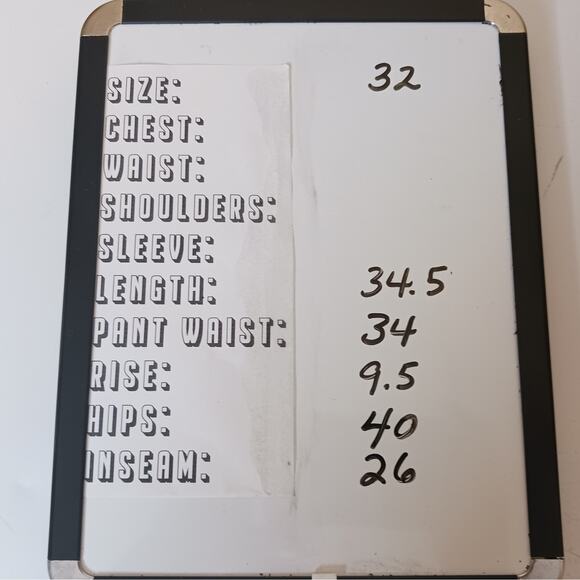 SIZE: 32
CHEST:
WAIST:
SHOULDERS:
SLEEVE:
LENGTH: 34.5
PANT WAIST: 34
RISE: 9.5
HIPS: 40
INSEAM: 26